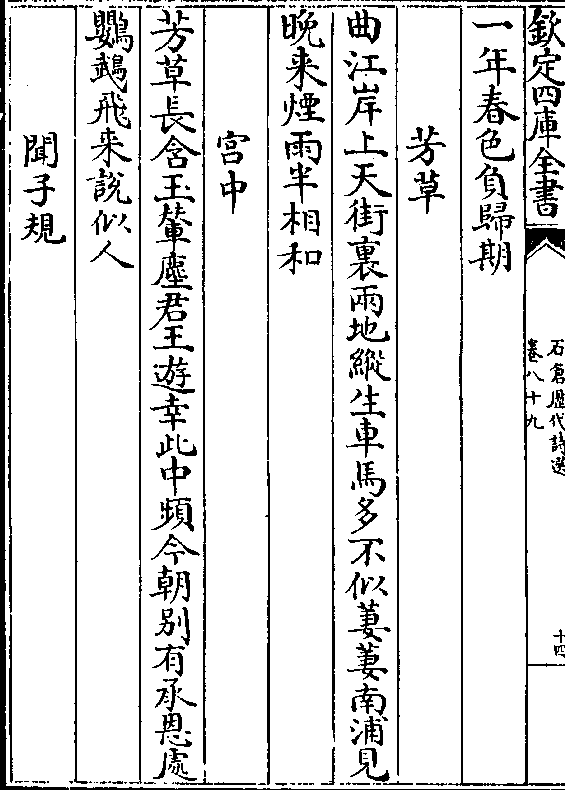 欽定四庫全書
石倉歷代詩選
卷八十九
十四
一年春色負歸期
芳草
曲江岸上天街裏兩地縱生車馬多不似萋萋南浦見
晚来煙雨半相和
宫中
芳草長含玉輦塵君王遊幸此中頻今朝别有承恩處
鸚鵡飛来說似人
聞子規